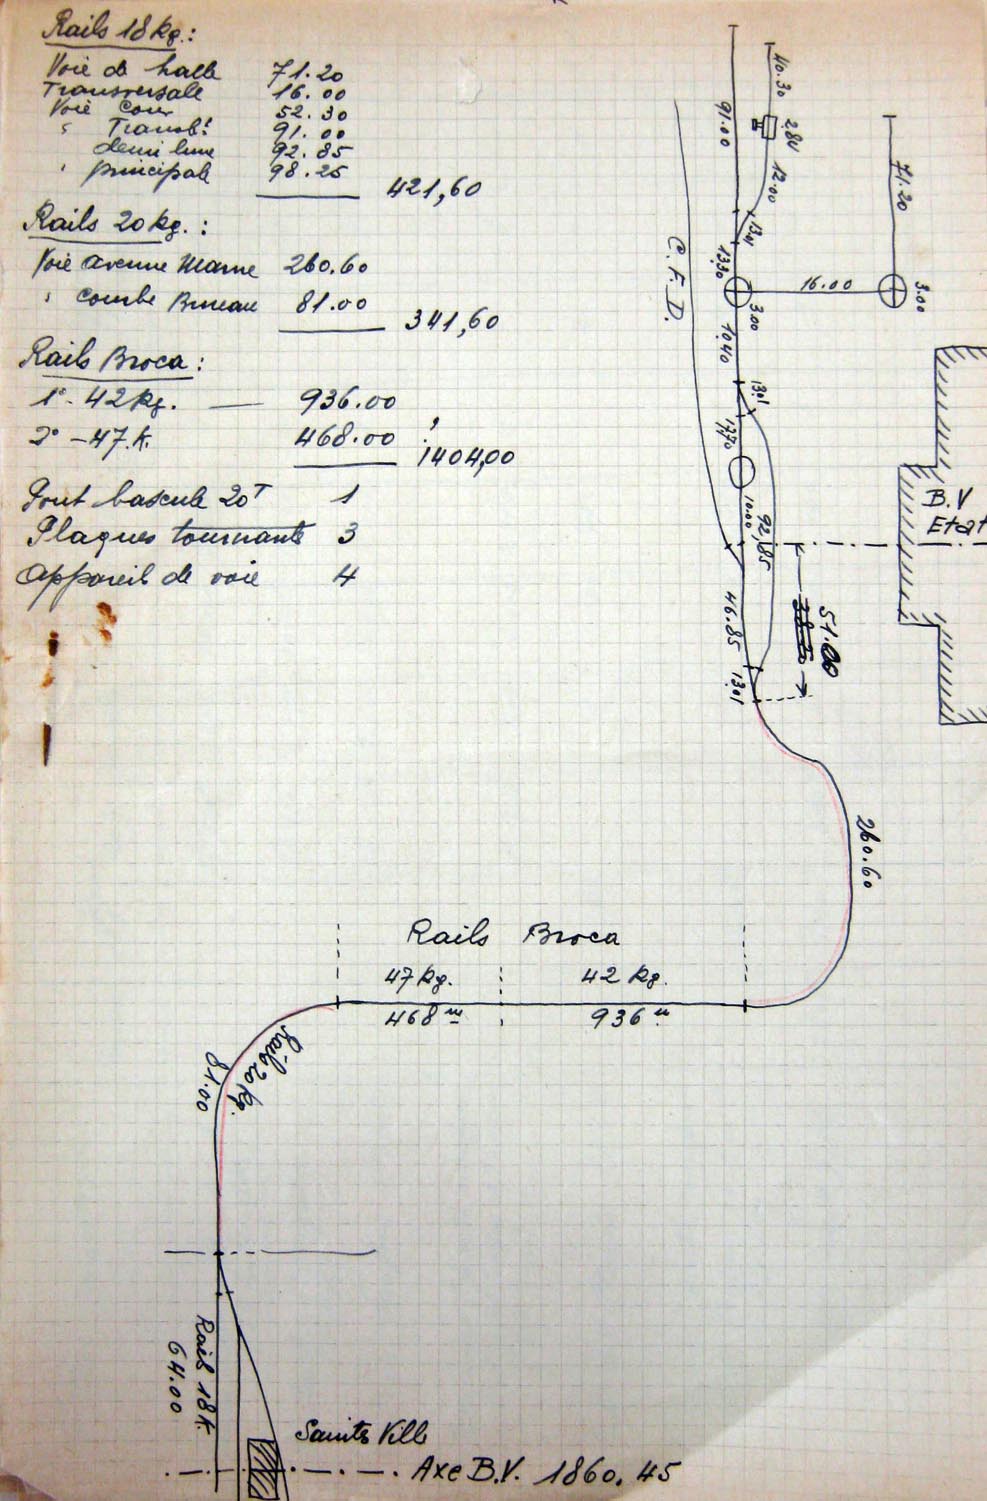 Rails 18kg.:
Voie de halle 71.20
Transversale 16.00
Voie Cour 52.30
" Transbt 91.00
demi lune 92.85
" principale 98.25
421,60
Rails 20kg.:
Voie avenue Marne 260.60
" courbe Bruneau 81.00
341,60
Rails Broca:
1° - 42kg. — 936.00
2° - 47.k. 468.00
1404,00
Pont bascule 20T 1
Plaques tournante 3
Appareil de voie 4
40.30
28V
91.00
12.00
13.01
13.30
3.00
16.00
71.20
3.00
C.F.D.
10.40
13.01
13.70
10.00
92,85
B.V
Etat
46.85
51.00
13.01
260.60
Rails Broca
47kg. 42 kg.
468 m 936 m
Rails 20kg.
81.00
Rail 18k.
64.00
Saintes Ville
Axe B.V. 1860.45